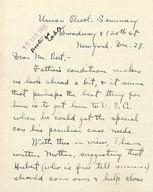 Union Theol. Seminary
Broadway & 120th st
New York. Dec. 27.
Dear Mr. Peet,-
Father's condition makes
me look ahead a bit, & it seems
that perhaps the best thing for
him is to get him to U. S. A.
where he could get the special
care his peculiar case needs.
With this in view, I have
written Mother, suggesting that
(who is free till summer)
should come over & help close